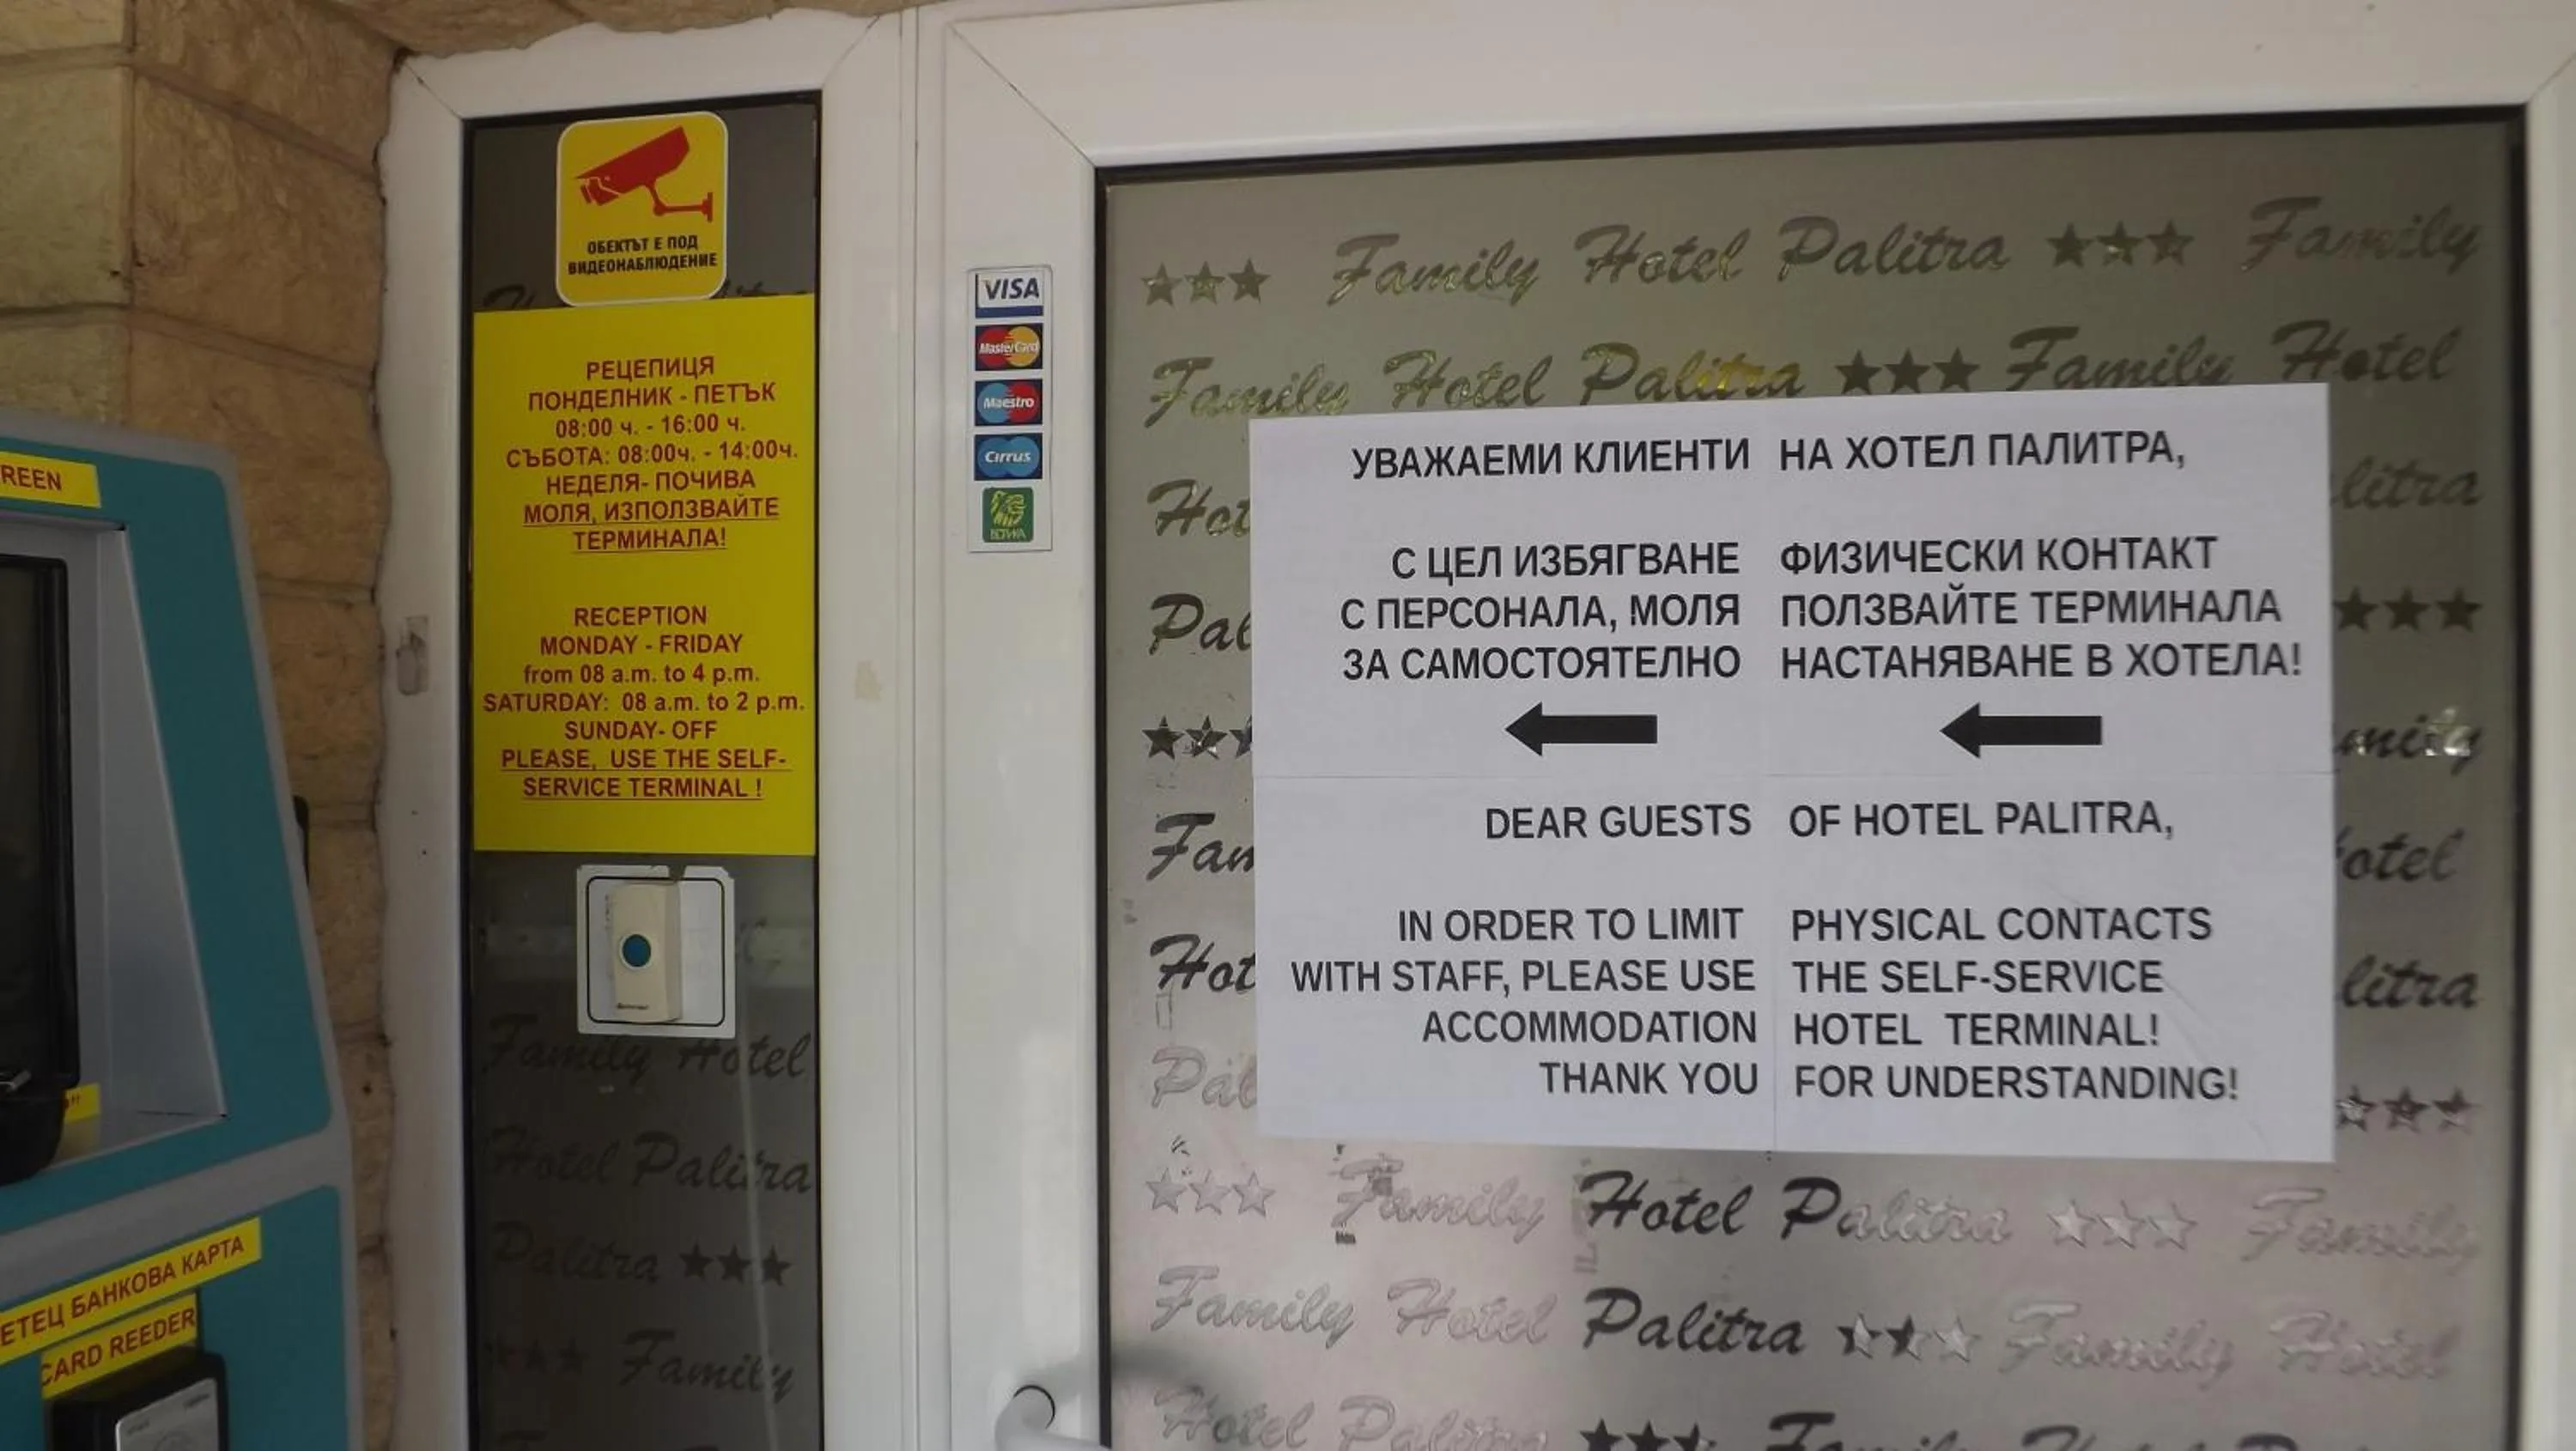 REEN
ЕТЕЦ БАНКОВА КАРТА
CARD REEDER
ОБЕКТЪТ Е ПОД
ВИДЕОНАБЛЮДЕНИЕ
РЕЦЕПИЦЯ
ПОНДЕЛНИК - ПЕТЪК
08:00 ч. - 16:00 ч.
СЪБОТА: 08:00ч. - 14:00ч.
НЕДЕЛЯ- ПОЧИВА
МОЛЯ, ИЗПОЛЗВАЙТЕ
ТЕРМИНАЛА!
RECEPTION
MONDAY - FRIDAY
from 08 a.m. to 4 p.m.
SATURDAY: 08 a.m. to 2 p.m.
SUNDAY- OFF
PLEASE, USE THE SELF-
SERVICE TERMINAL !
Family Hotel
Hotel Palitra
Palitra ★★★
★★★ Family
VISA
MasterCard
Maestro
Cirrus
★★★ Family Hotel Palitra ★★★ Family
Family Hotel Palitra ★★★ Family Hotel
Hot
litra
Pal
★★★
★★★
mily
Fam
otel
Hot
litra
Pal
★★★
УВАЖАЕМИ КЛИЕНТИ НА ХОТЕЛ ПАЛИТРА,
С ЦЕЛ ИЗБЯГВАНЕ ФИЗИЧЕСКИ КОНТАКТ
С ПЕРСОНАЛА, МОЛЯ ПОЛЗВАЙТЕ ТЕРМИНАЛА
ЗА САМОСТОЯТЕЛНО НАСТАНЯВАНЕ В ХОТЕЛА!
DEAR GUESTS OF HOTEL PALITRA,
IN ORDER TO LIMIT PHYSICAL CONTACTS
WITH STAFF, PLEASE USE THE SELF-SERVICE
ACCOMMODATION HOTEL TERMINAL!
THANK YOU FOR UNDERSTANDING!
★★★ Family Hotel Palitra ★★★ Family
Family Hotel Palitra ★★★ Family Hotel
Hotel Palitra ★★★ Family Hotel